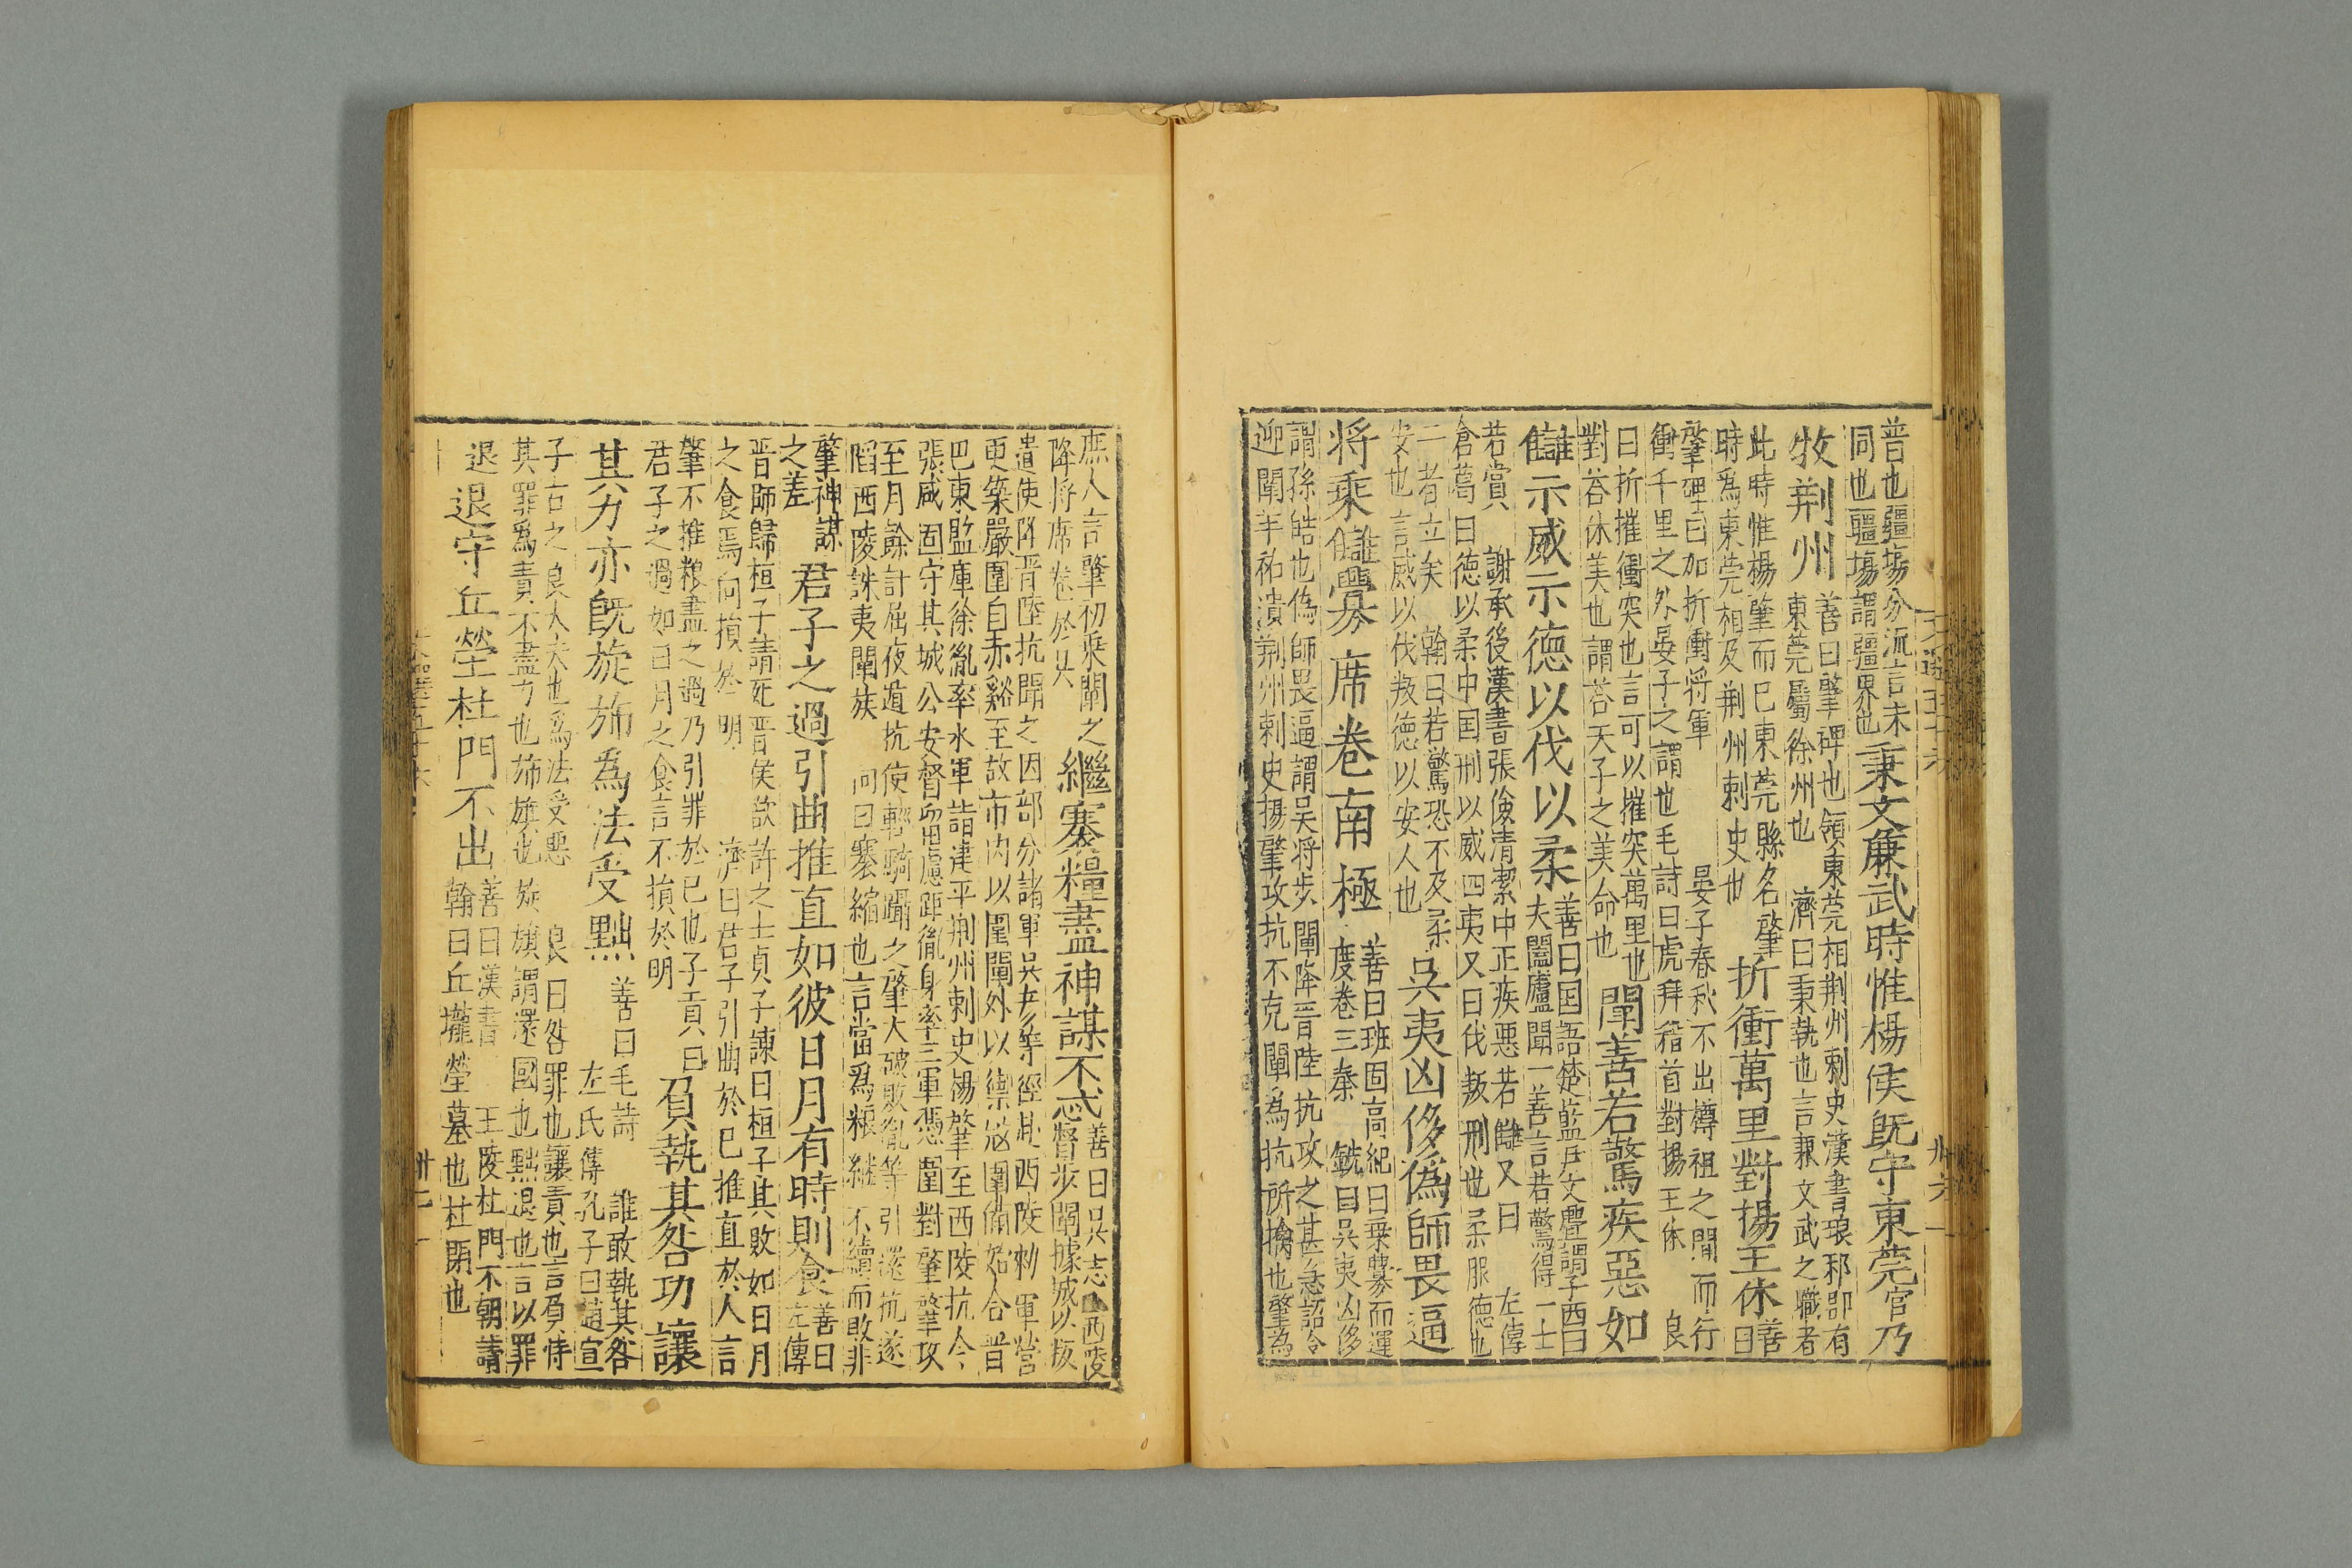 普也疆埸分流言未
同也疆埸謂疆界也
秉文兼武時惟楊侯旣守東莞官乃
牧荆州
善曰肈碑也領東莞相荆州刺史漢書琅邪郡有
東莞屬徐州也 濟曰秉執也言兼文武之職者
此時惟楊肈而已東莞縣名肈
時爲東莞相及荆州刺史也
折衝萬里對揚王休
善
曰
肈碑曰加折衝將軍 晏子春秋不出樽俎之間而行
衝千里之外晏子之謂也毛詩曰虎拜稽首對揚王休 良
曰折摧衝突也言可以摧突萬里也
對荅休美也謂荅天子之美命也
聞善若驚疾惡如
讎示威示德以伐以柔
善曰国語楚藍尹文亹謂子西曰
夫闔廬聞一善言若驚得一士
若賞 謝承後漢書張儉清潔中正疾惡若讎又曰 左傳
倉葛曰德以柔中国刑以威四夷又曰伐叛刑也柔服德也
二者立矣 翰曰若驚恐不及柔
安也言威以伐叛德以安人也
吳夷凶侈僞師畏逼
将乘讎釁席卷南極
善曰班固高紀曰乗釁而運
度卷三秦 銑曰吳夷凶侈
謂孫皓也僞師畏逼謂吴将步闡降晋陸抗攻之甚急詔令
迎闡羊祜潰荆州刺史揚肈攻抗不克闡爲抗所擒也肈爲
庶人言肈初乗闡之
降将席卷於吴
繼塞糧盡神謀不忒
善曰吴志西陵
督步闡據城以叛
遣使降晋陸抗聞之因部分諸軍吴彦等徑赴西陵勑軍營
更築嚴圍自赤谿至故市内以圍闡外以禦寇圍備始合晋
巴東監庫徐胤率水軍詣建平荆州刺史楊肈至西陵抗令
張咸固守其城公安督留慮距胤身率三軍憑圍對肈肈攻
至月餘計屈夜遁抗使輕騎躡之肈大破敗胤等引還抗遂
䧟西陵誅夷闡族 向曰塞縮也言當爲粮継不續而敗非
肈神謀
之差
君子之過引曲推直如彼日月有時則食
善曰
左傳
晋師歸桓子請死晋侯欲許之士貞子諫曰桓子其敗如日月
之食焉何損於明 濟曰君子引曲於己推直於人言
肈不推粮盡之過乃引罪於己也子貢曰
君子之過如日月之食言不損於明
負執其咎功讓
其力亦旣旋斾爲法受黜
善曰毛詩 誰敢執其咎
左氏傳孔子曰趙宣
子古之良大夫也爲法受惡 良曰咎罪也讓責也言負恃
其罪爲責不盡力也斾旗也旋旗謂還國也黜退也言以罪
退
退守丘塋杜門不出
善曰漢書 王陵杜門不朝請
翰曰丘壠塋墓也杜閉也